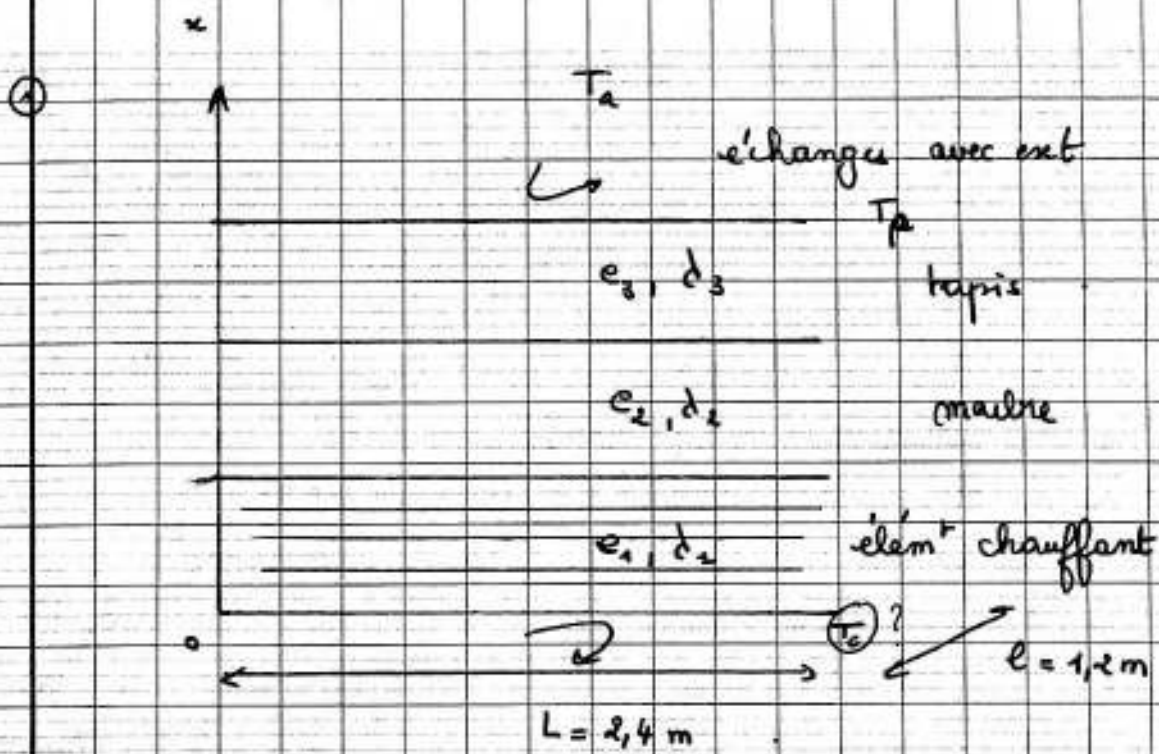 x
①
T_a
échanges avec ext
T_p
e_3, λ_3
tapis
e_2, λ_2
marbre
e_1, λ_1
élém^t chauffant
0
T_0 ?
l = 1,2 m
L = 2,4 m